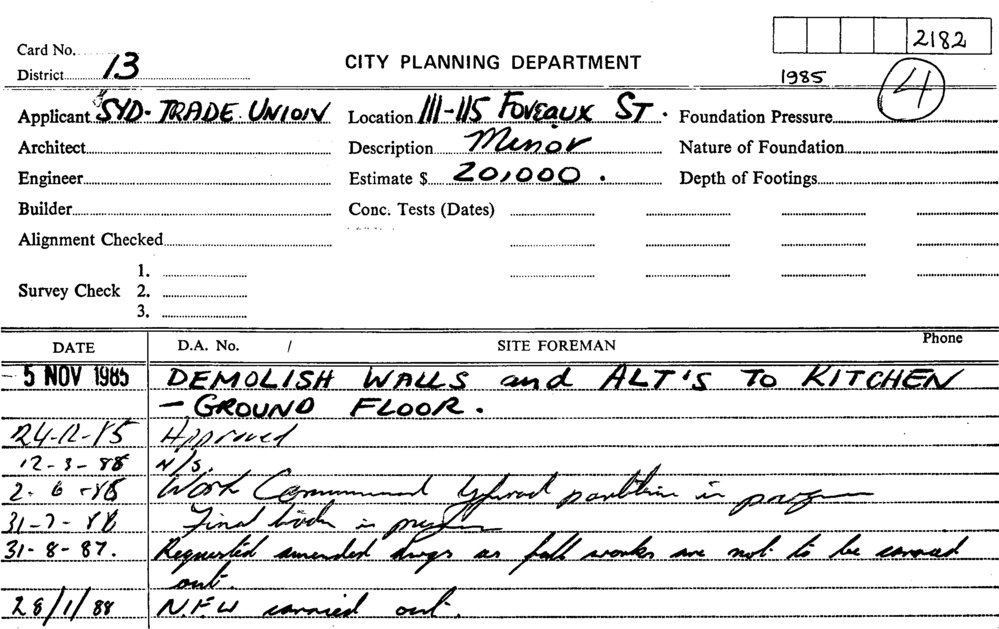 2182
Card No.
District 13
CITY PLANNING DEPARTMENT
1985
4
Applicant SYD. TRADE UNION
Location 111-115 FOVEAUX ST.
Foundation Pressure
Architect
Description Minor
Nature of Foundation
Engineer
Estimate $ 20,000.
Depth of Footings
Builder
Conc. Tests (Dates)
Alignment Checked
Survey Check
1.
2.
3.
DATE
D.A. No. /
SITE FOREMAN
Phone
- 5 NOV 1985 DEMOLISH WALLS and ALT'S TO KITCHEN
- GROUND FLOOR.
24-12-85 Approved
12-3-86 N/S.
Work Commenced partition in progress
Final in progress
31-8-87. Requested amended dwgs as full works are not to be carried
out.
28/1/88 N.F.W carried out.